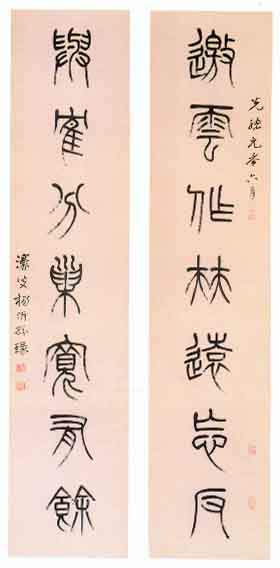 光緒元年六月
邀雲作㚘遠忘反
與寉分巢寬有餘
濠叟楊沂孫篆